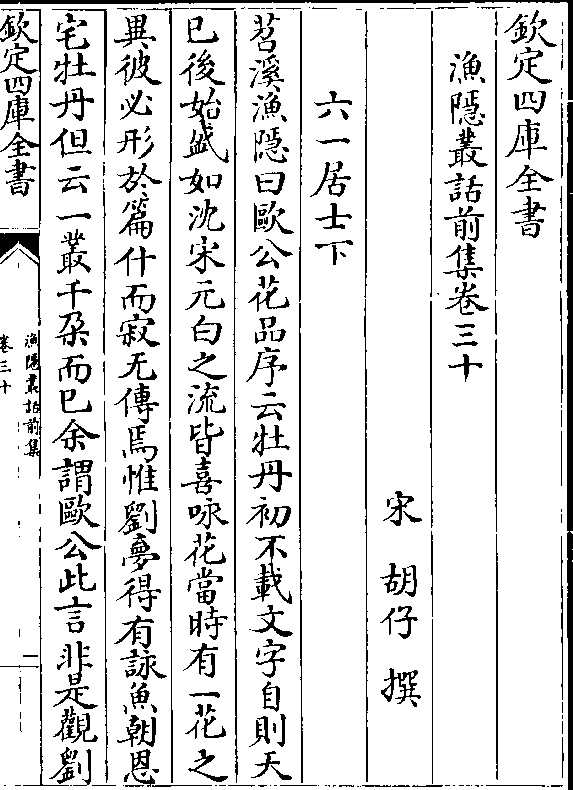 欽定四庫全書
漁隱叢話前集卷三十
宋 胡仔 撰
六一居士下
苕溪漁隱曰歐公花品序云牡丹初不載文字自則天
已後始盛如沈宋元白之流皆喜咏花當時有一花之
異彼必形於篇什而寂无傳焉惟劉夢得有詠魚朝恩
宅牡丹但云一叢千朶而已余謂歐公此言非是觀劉
欽定四庫全書
漁隱叢話前集
卷三十
一